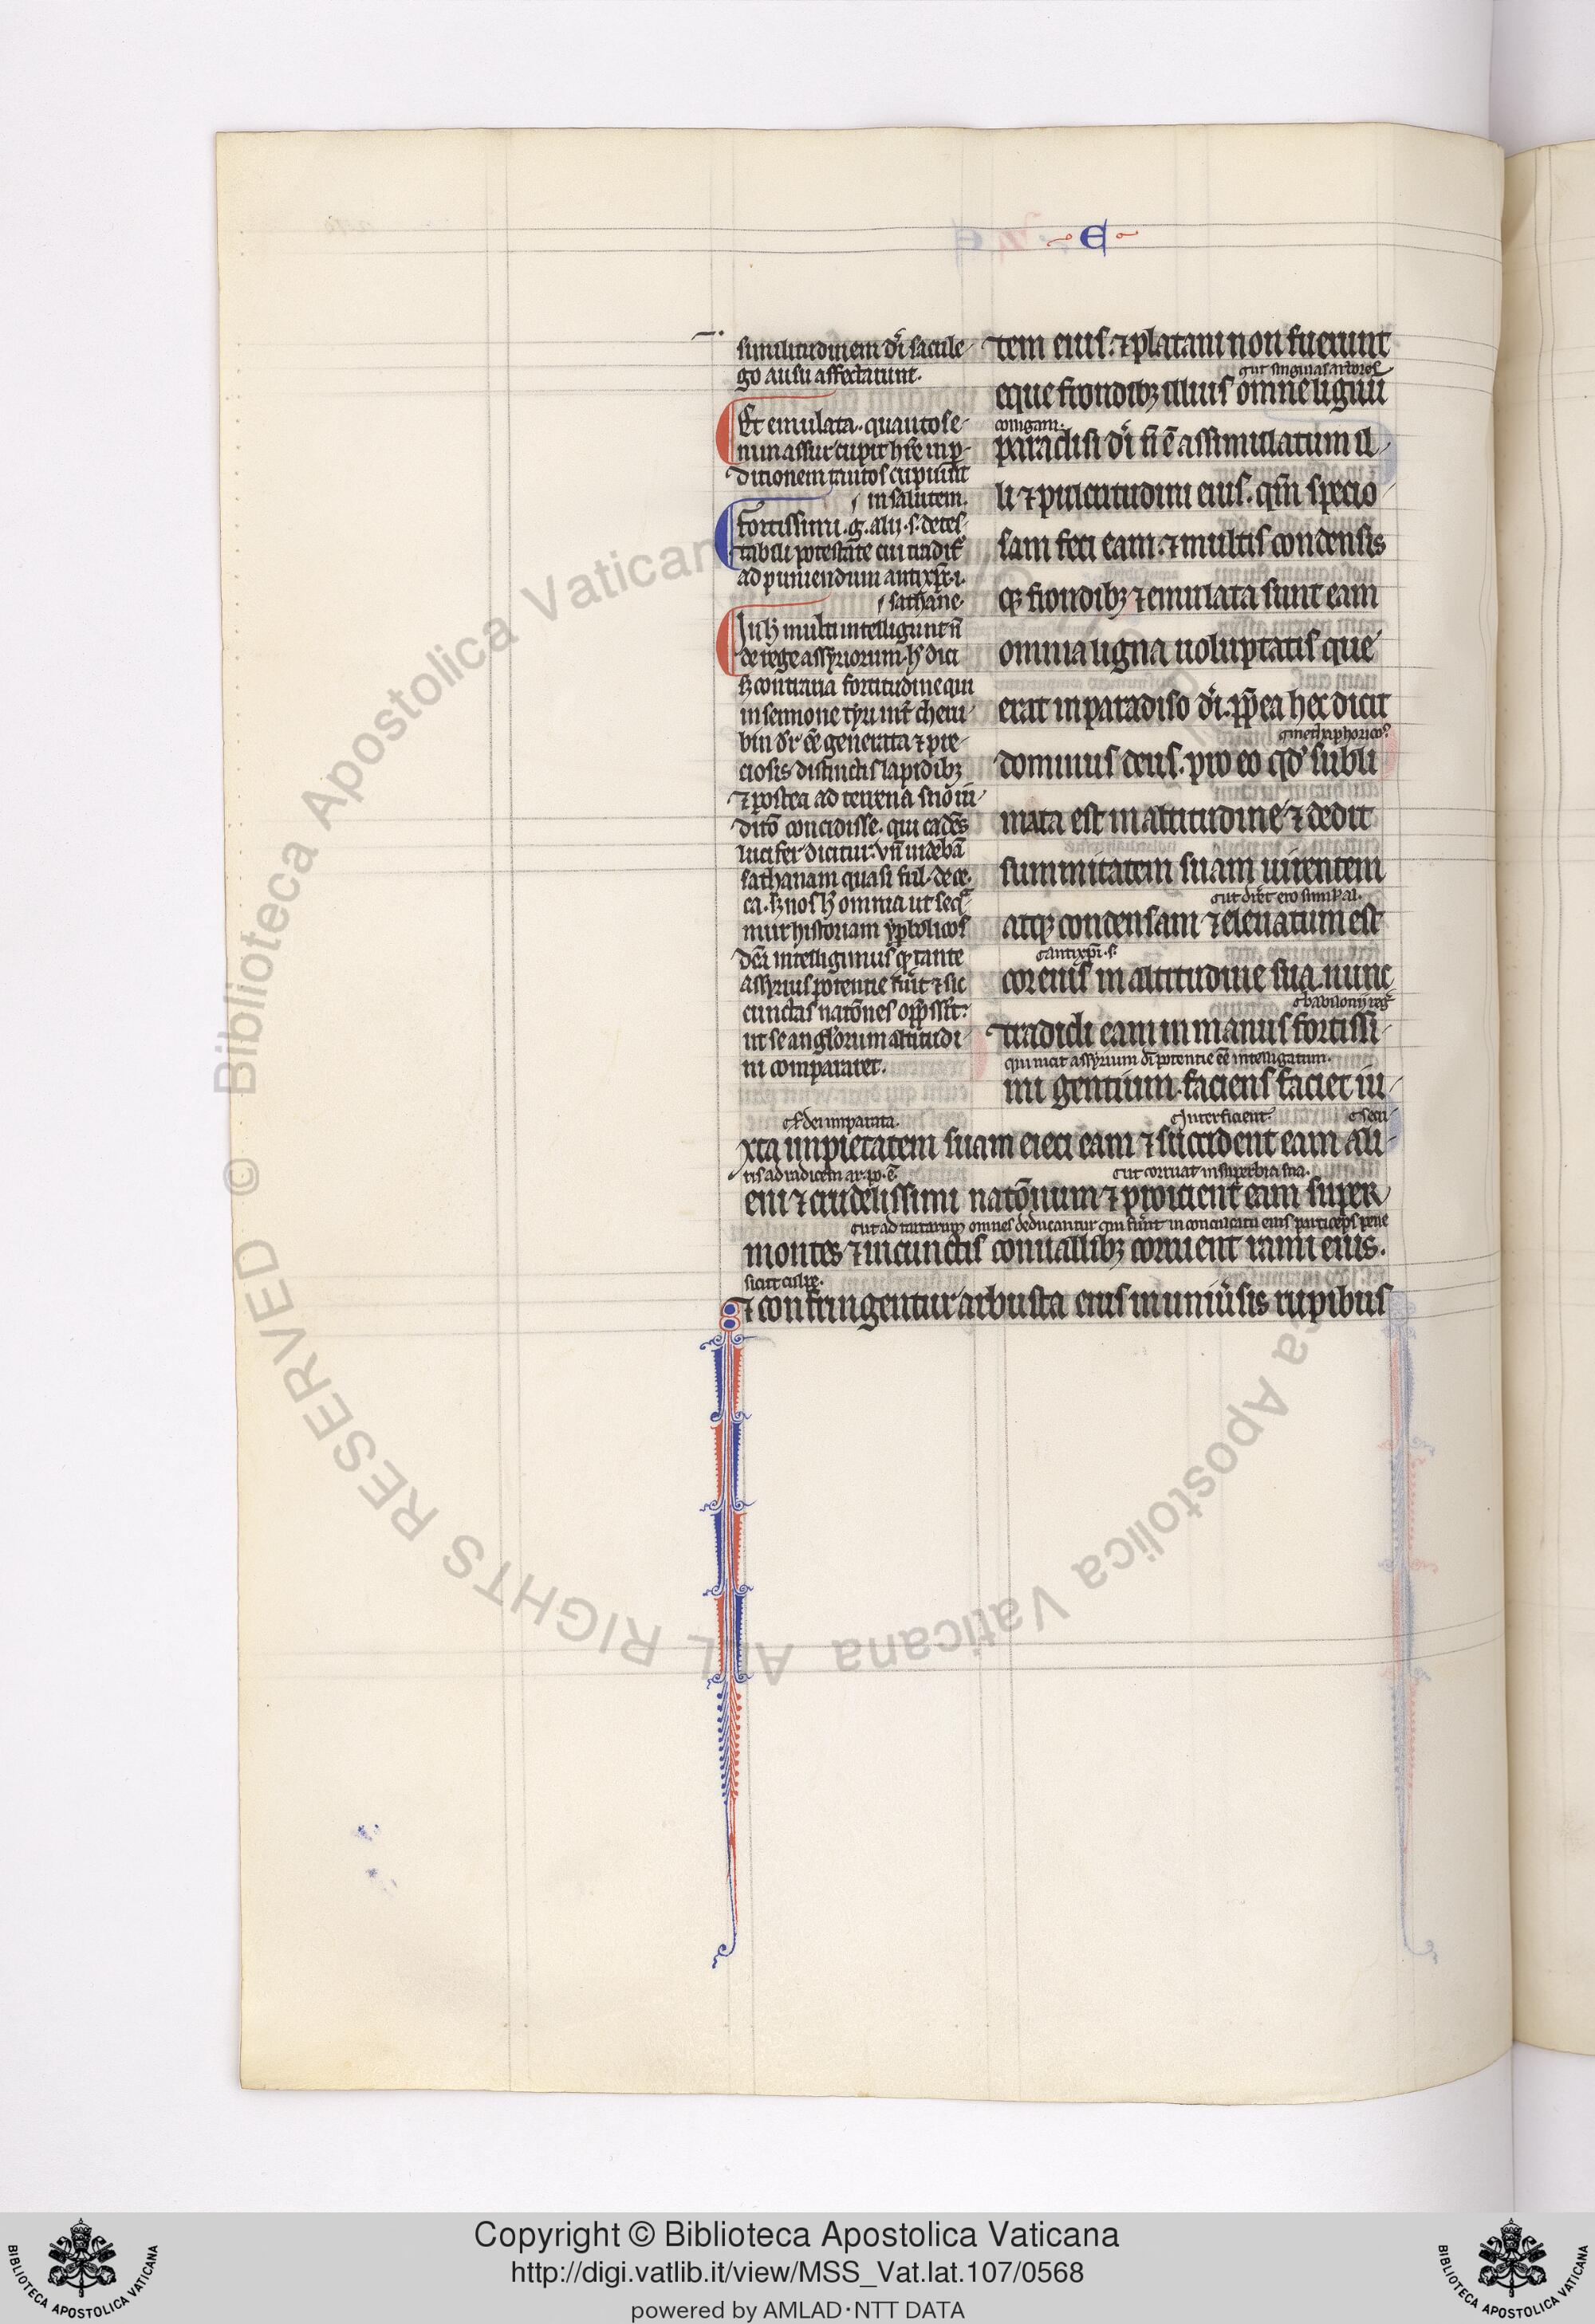 E
similitudinem dĩ sacrile-
go ausu affectarunt.
Et emulata. quanto se-
num assur cupit hr̃e in p̱-
ditionem tantos cupiũnt
in salutem.
fortissimi .g. alii .s. detes-
tabili potestate cui tradit᷑
ad puniendum antixp̃r .i.
sathane.
multi intelligunt ñ
de rege assyriorum. dici
contraria fortitudine qui
in sermone tyri int̃ cheru-
bin dr̃ ẽe generata ⁊ pre-
ciosis distinctis lapidibꝫ
⁊ postea ad terrena
concidisse. qui cadẽs
lucifer dicitur. vñ uidebã
sathanam quasi ful. de ce.
ca. nos omnia ut seq̃-
mur historiam
intelligimus ꝙ tante
assyrius potentie fuit ⁊ sic
cunctas natões opp̃sser̃t
ut se anglorum altitudi-
ni compararet.
tem eius. ⁊ platani non fuerunt
ut singulas arbores
eque frondibꝫ illius omne lignũ
conigam.
paradisi dĩ ñ ẽ assimulatum il-
li ⁊ pulcritudini eius. qm̃ specio-
sam feci eam. ⁊ multis condensis
qꝫ frondibꝫ ⁊ emulata sunt eam
omnia ligna uoluptatis que
erat in paradiso dĩ. pp̃ea hec dicit
methaphorico
dominus deus. pro eo qd̓ subli-
mata est in altitudine ⁊ dedit
summitatem suam uirentem
ut diẽt ero simil̓ al.
atqꝫ condensam ⁊ eleuatum est
antixp̃i .s.
cor eius in altitudine sua. nunc
babilonii reg̃
tradidi eam in manus fortissi-
qui uicit assyrium dĩ potentie ẽe intelligatum.
mi gentium. faciens faciet iu-
dei imparata.
interficient.
xta impietatem suam eieci eam ⁊ succident eam ali-
tis ad radicem ar. po. ẽ
ut corruat in superbia sua.
eni ⁊ crudelissimi natõnum ⁊ proicient eam super
ut ad tartarum omnes deducantur qui fuer̃t in conculcatu eius participes pene
montes ⁊ in cunctis conuallibꝫ corruent rami eius.
sicut culpe.
⁊ confringentur arbusta eius in uniũsis rupibus
© Biblioteca Apostolica Vaticana ALL RIGHTS RESERVED
Copyright © Biblioteca Apostolica Vaticana
http://digi.vatlib.it/view/MSS_Vat.lat.107/0568
powered by AMLAD·NTT DATA
BIBLIOTECA APOSTOLICA VATICANA
BIBLIOTECA APOSTOLICA VATICANA